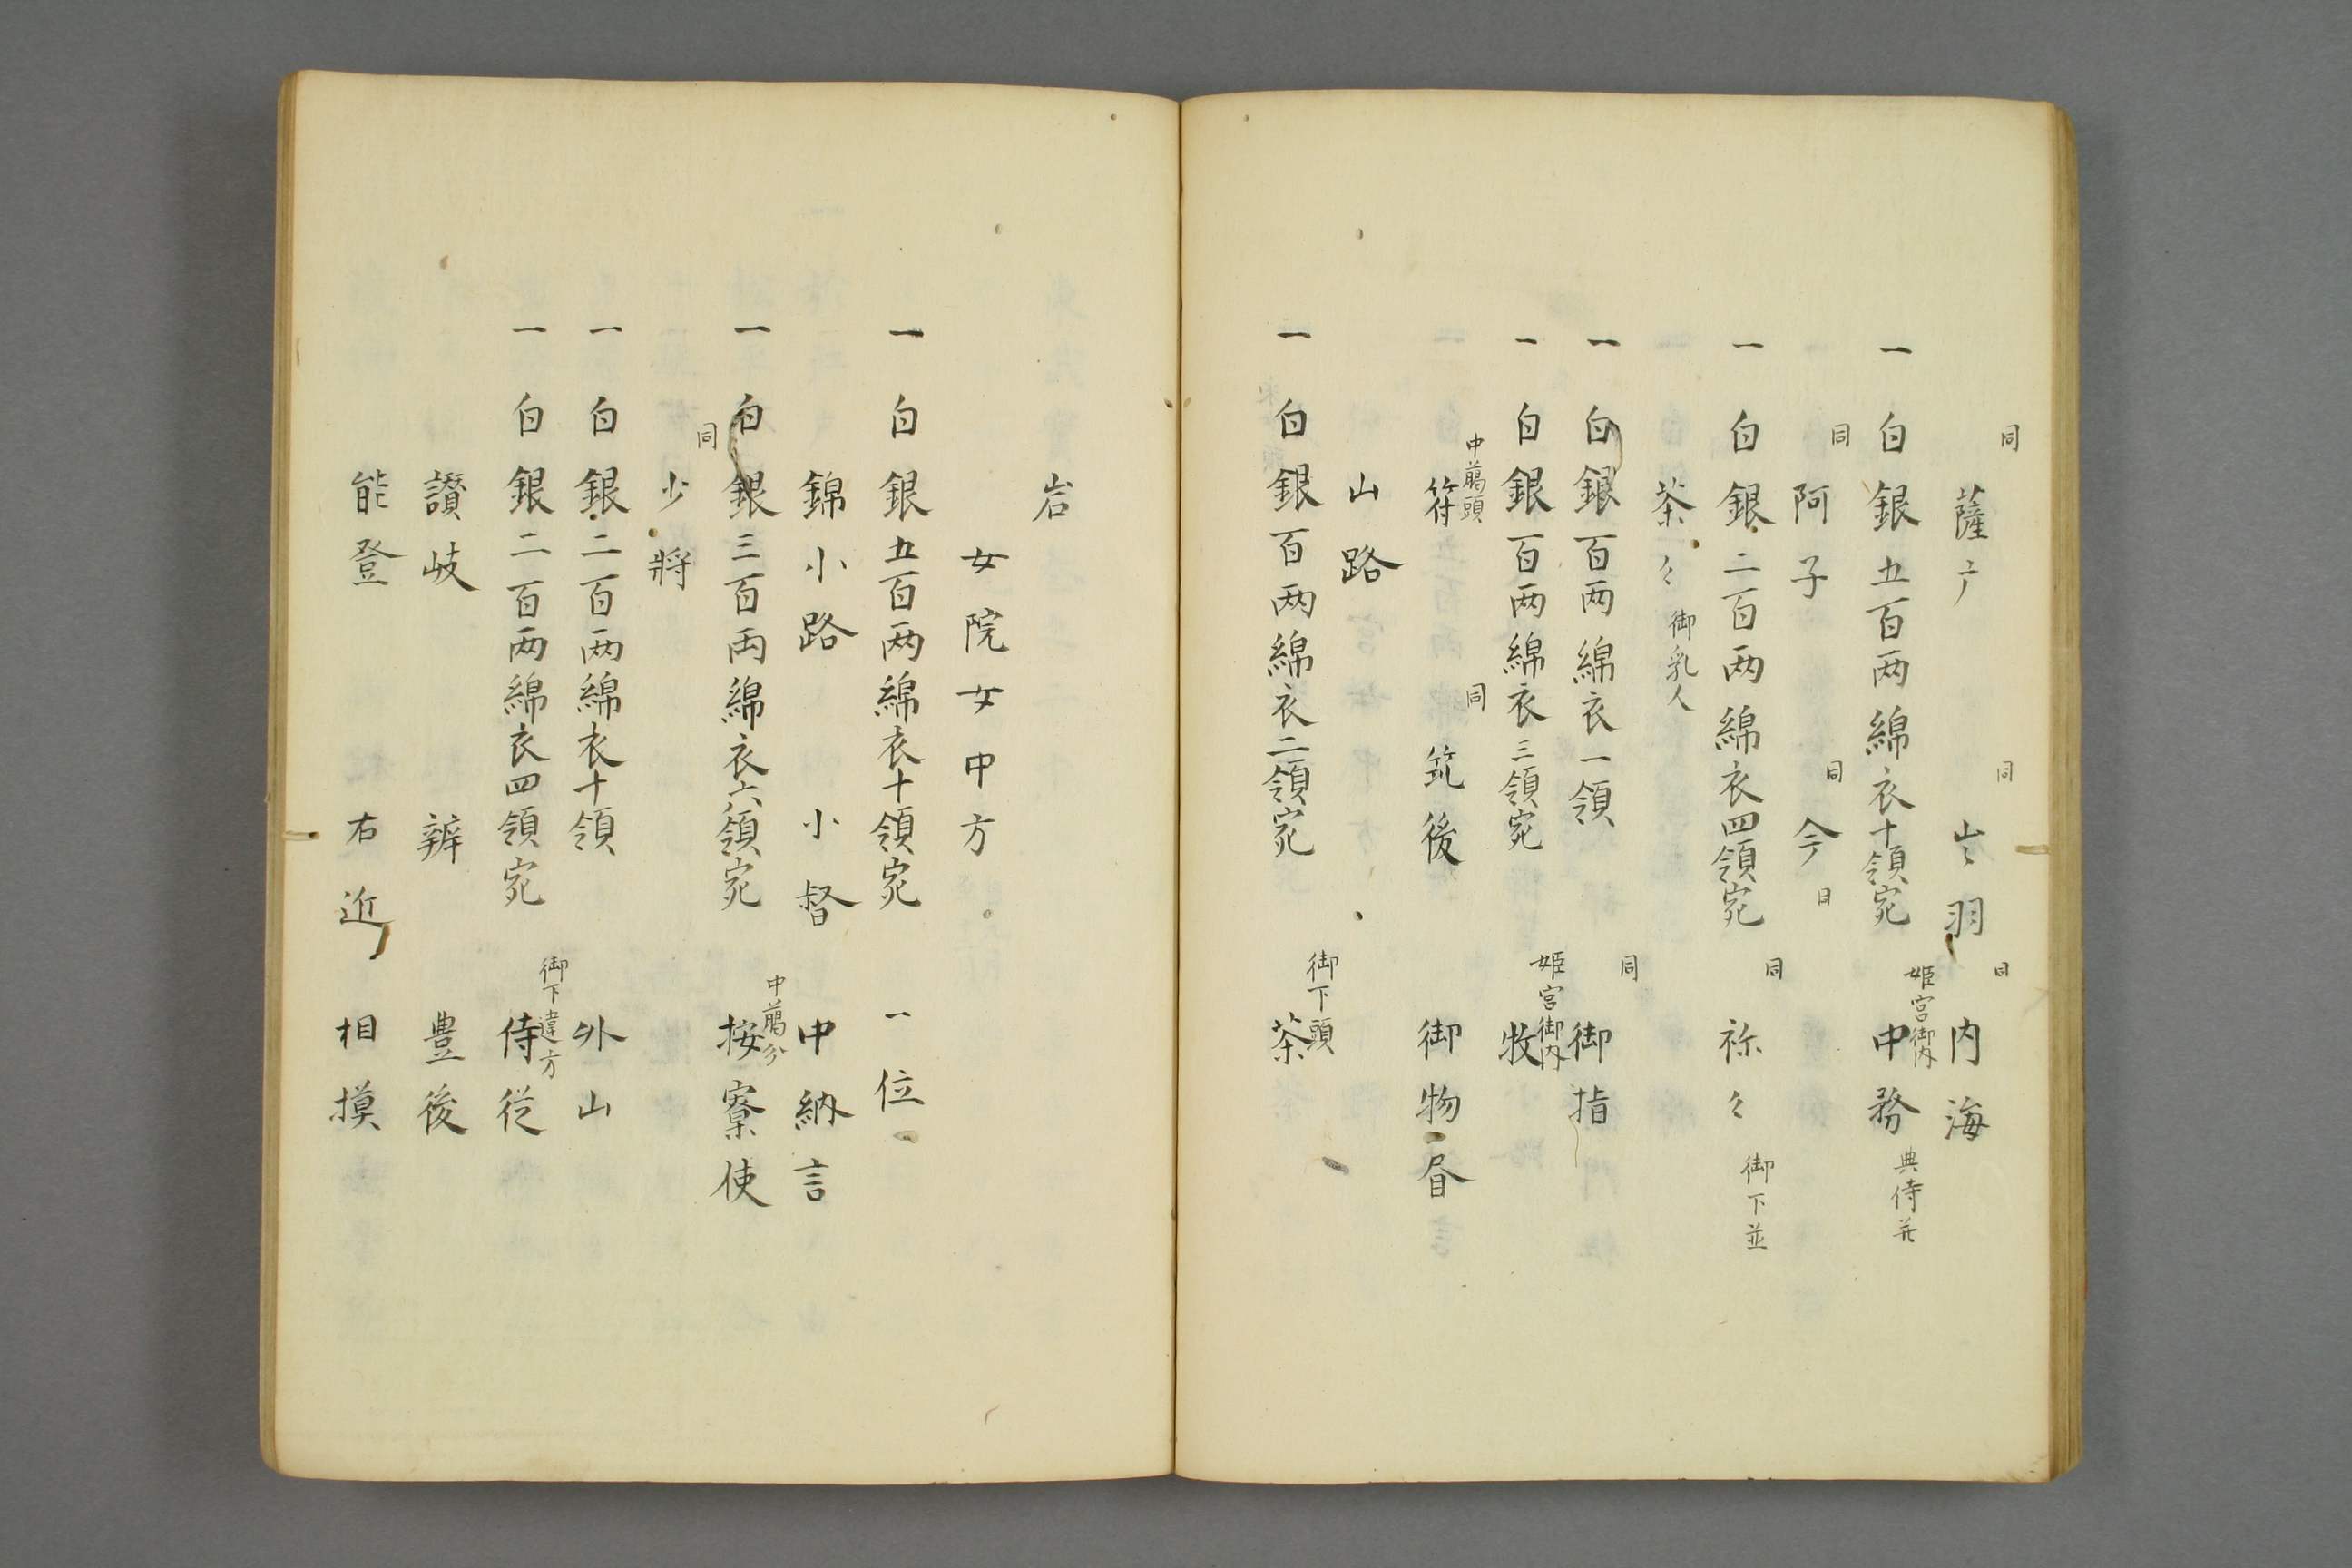 同 薩广 同 出羽 同 内海
一 白銀五百两綿衣十領宛 姫宮御内 中務 典侍並
同 阿子 同 今 同
一 白銀二百两綿衣四領宛 同 祢々 御下並
茶々 御乳人
一 白銀百两綿衣一領 同 御指
一 白銀百两綿衣三領宛 姫宮御内 牧
中﨟頭 符 同 筑後 御物昼
山路
一 白銀百两綿衣二領宛 御下頭 茶
岩
女院女中方
一 白銀五百两綿衣十領宛 一位
錦小路 小督 中納言
一 白銀三百両綿衣六領宛 中﨟分 按察使
同 少将
一 白銀二百两綿衣十領 外山
一 白銀二百两綿衣四領宛 御下違方 侍従
讃岐 辨 豊後
能登 右近 相摸